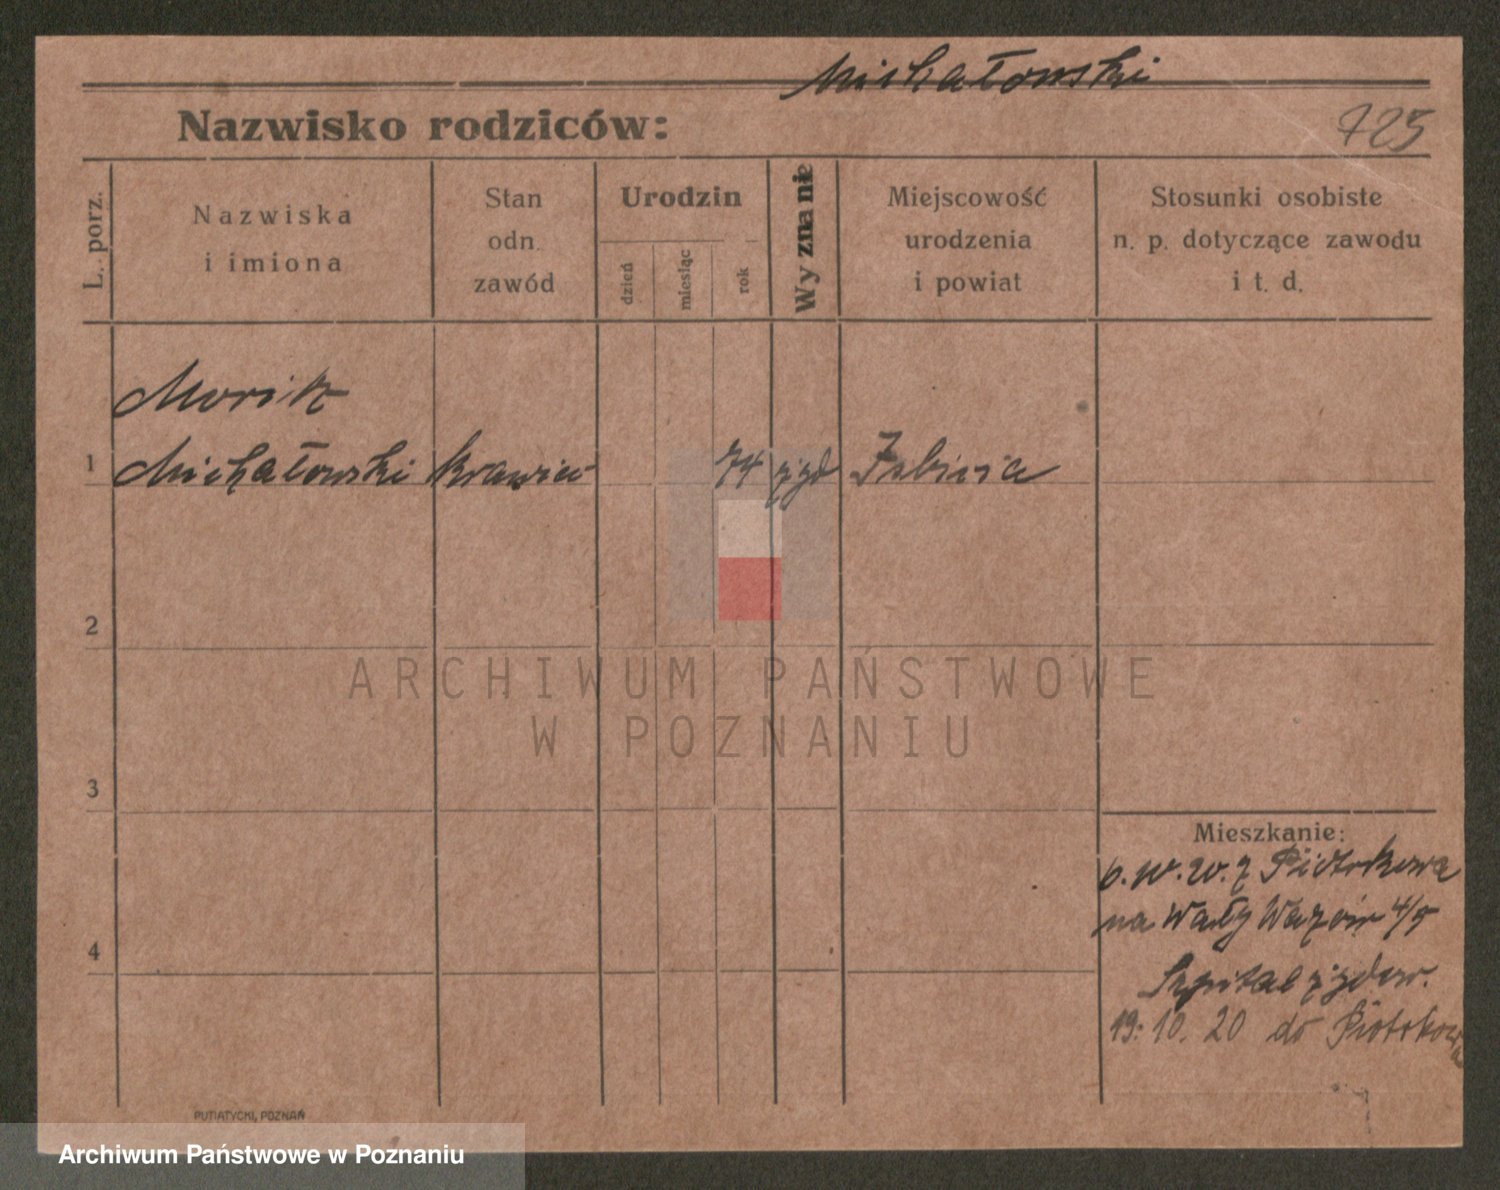 Michałowski
Nazwisko rodziców:
725
L. porz.
Nazwiska
i imiona
Stan
odn.
zawód
Urodzin
dzień
miesiąc
rok
Wyznanie
Miejscowość
urodzenia
i powiat
Stosunki osobiste
n. p. dotyczące zawodu
i t. d.
Moritz
1 Michałowski krawiec 74 żyd Izbica
2
ARCHIWUM PAŃSTWOWE
W POZNANIU
3
Mieszkanie:
z Piotrkowa
na Wały 4/5
4
Szpital żydow.
19. 10. 20 do Piotrkowa
PUTIATYCKI, POZNAŃ
Archiwum Państwowe w Poznaniu